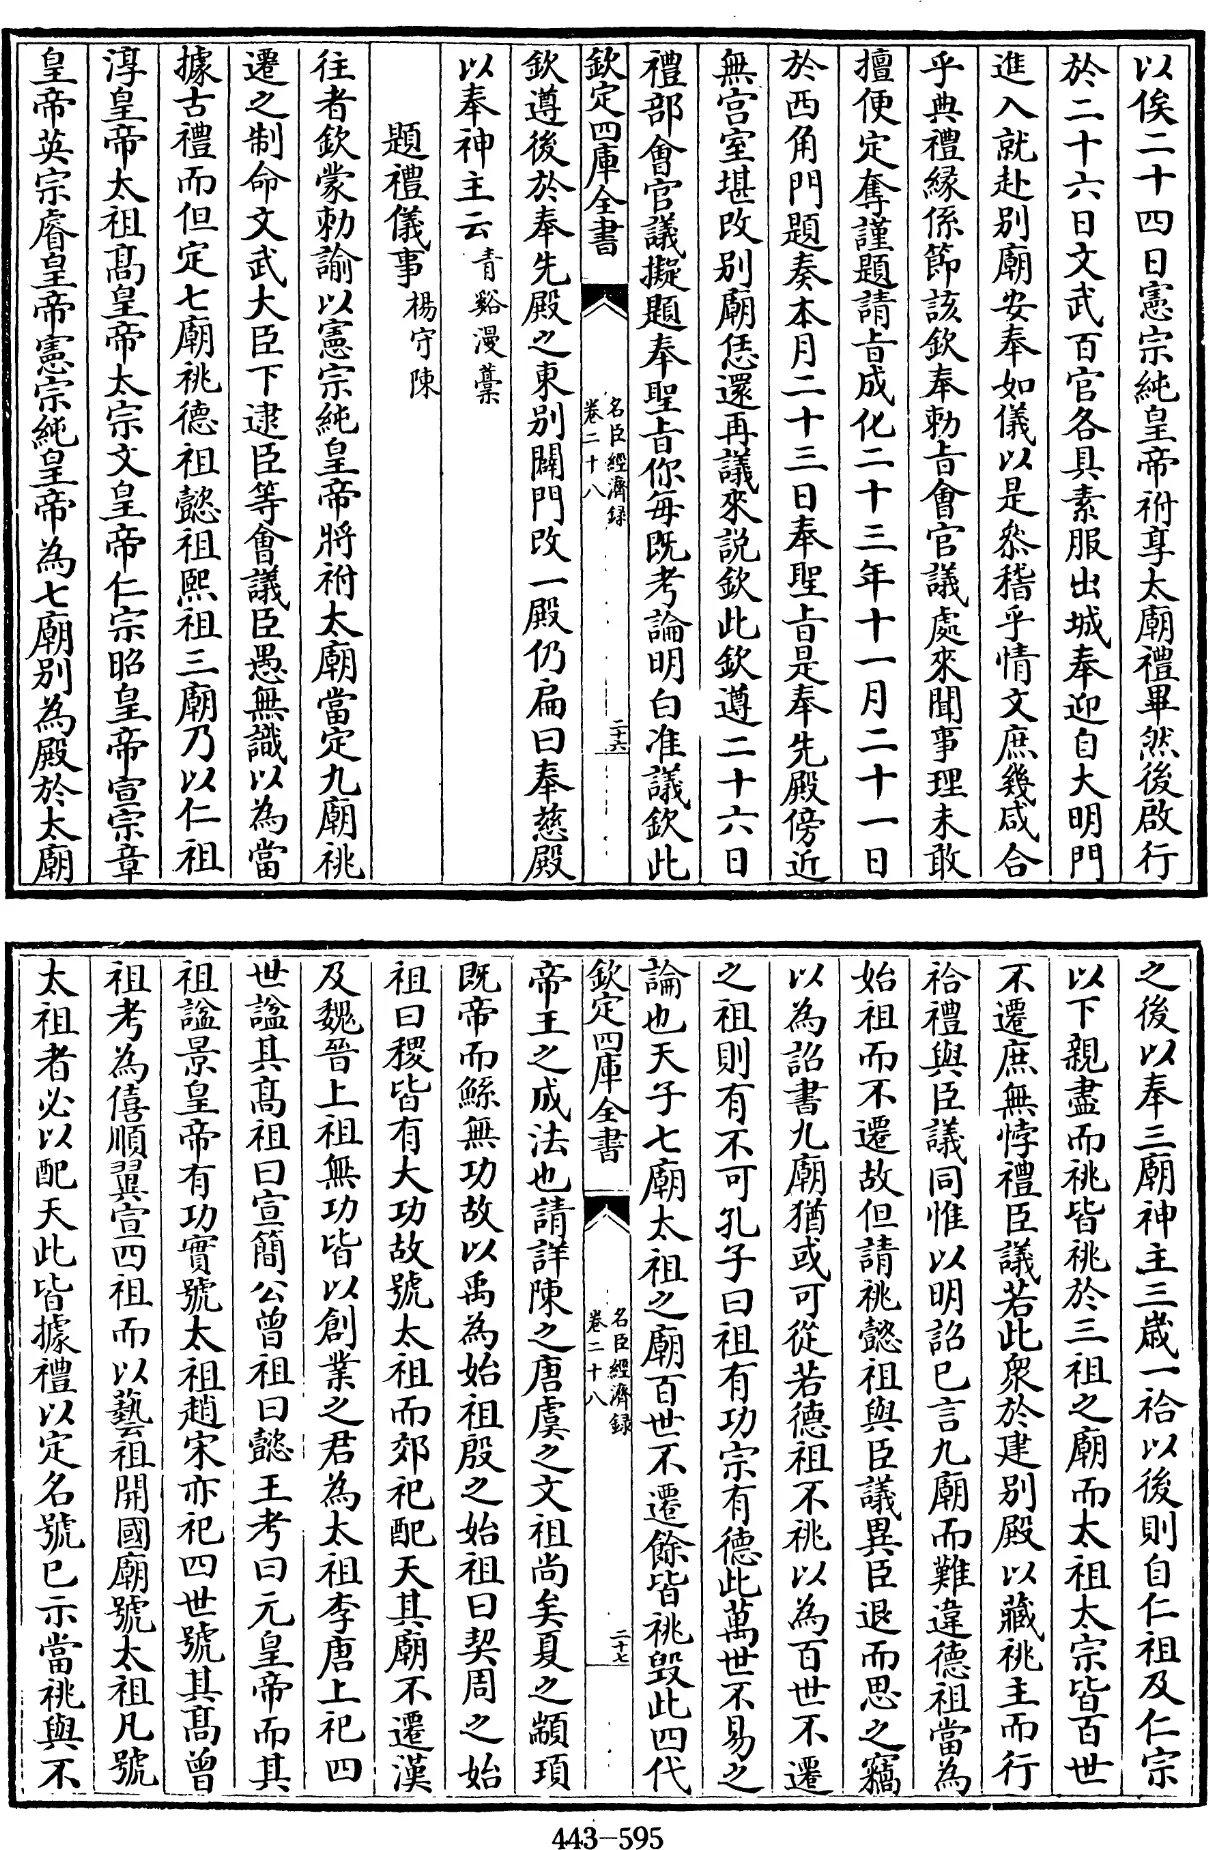 以俟二十四日憲宗純皇帝祔享太廟禮畢然後啟行
於二十六日文武百官各具素服出城奉迎自大明門
進入就赴别廟安奉如儀以是叅稽乎情文庶幾咸合
乎典禮緣係節該欽奉勅㫖會官議處來聞事理未敢
擅便定奪謹題請㫖成化二十三年十一月二十一日
於西角門題奏本月二十三日奉聖㫖是奉先殿傍近
無宫室堪改别廟恁還再議來説欽此欽遵二十六日
禮部會官議擬題奉聖㫖你每既考論明白准議欽此
欽定四庫全書
名臣經濟録
卷二十八
二十六
欽遵後於奉先殿之東别闢門改一殿仍扁曰奉慈殿
以奉神主云青谿漫藁
題禮儀事楊守陳
往者欽蒙勅諭以憲宗純皇帝將祔太廟當定九廟祧
遷之制命文武大臣下逮臣等會議臣愚無識以為當
據古禮而但定七廟祧德祖懿祖熙祖三廟乃以仁祖
淳皇帝太祖髙皇帝太宗文皇帝仁宗昭皇帝宣宗章
皇帝英宗睿皇帝憲宗純皇帝為七廟别為殿於太廟
之後以奉三廟神主三歳一祫以後則自仁祖及仁宗
以下親盡而祧皆祧於三祖之廟而太祖太宗皆百世
不遷庶無悖禮臣議若此衆於建别殿以藏祧主而行
祫禮與臣議同惟以明詔已言九廟而難違德祖當為
始祖而不遷故但請祧懿祖與臣議異臣退而思之竊
以為詔書九廟猶或可從若德祖不祧以為百世不遷
之祖則有不可孔子曰祖有功宗有德此萬世不易之
論也天子七廟太祖之廟百世不遷餘皆祧毁此四代
欽定四庫全書
名臣經濟録
卷二十八
二十七
帝王之成法也請詳陳之唐虞之文祖尚矣夏之顓頊
既帝而鯀無功故以禹為始祖殷之始祖曰契周之始
祖曰稷皆有大功故號太祖而郊祀配天其廟不遷漢
及魏晉上祖無功皆以創業之君為太祖李唐上祀四
世諡其髙祖曰宣簡公曾祖曰懿王考曰元皇帝而其
祖諡景皇帝有功實號太祖趙宋亦祀四世號其髙曾
祖考為僖順翼宣四祖而以藝祖開國廟號太祖凡號
太祖者必以配天此皆據禮以定名號已示當祧與不
443-595